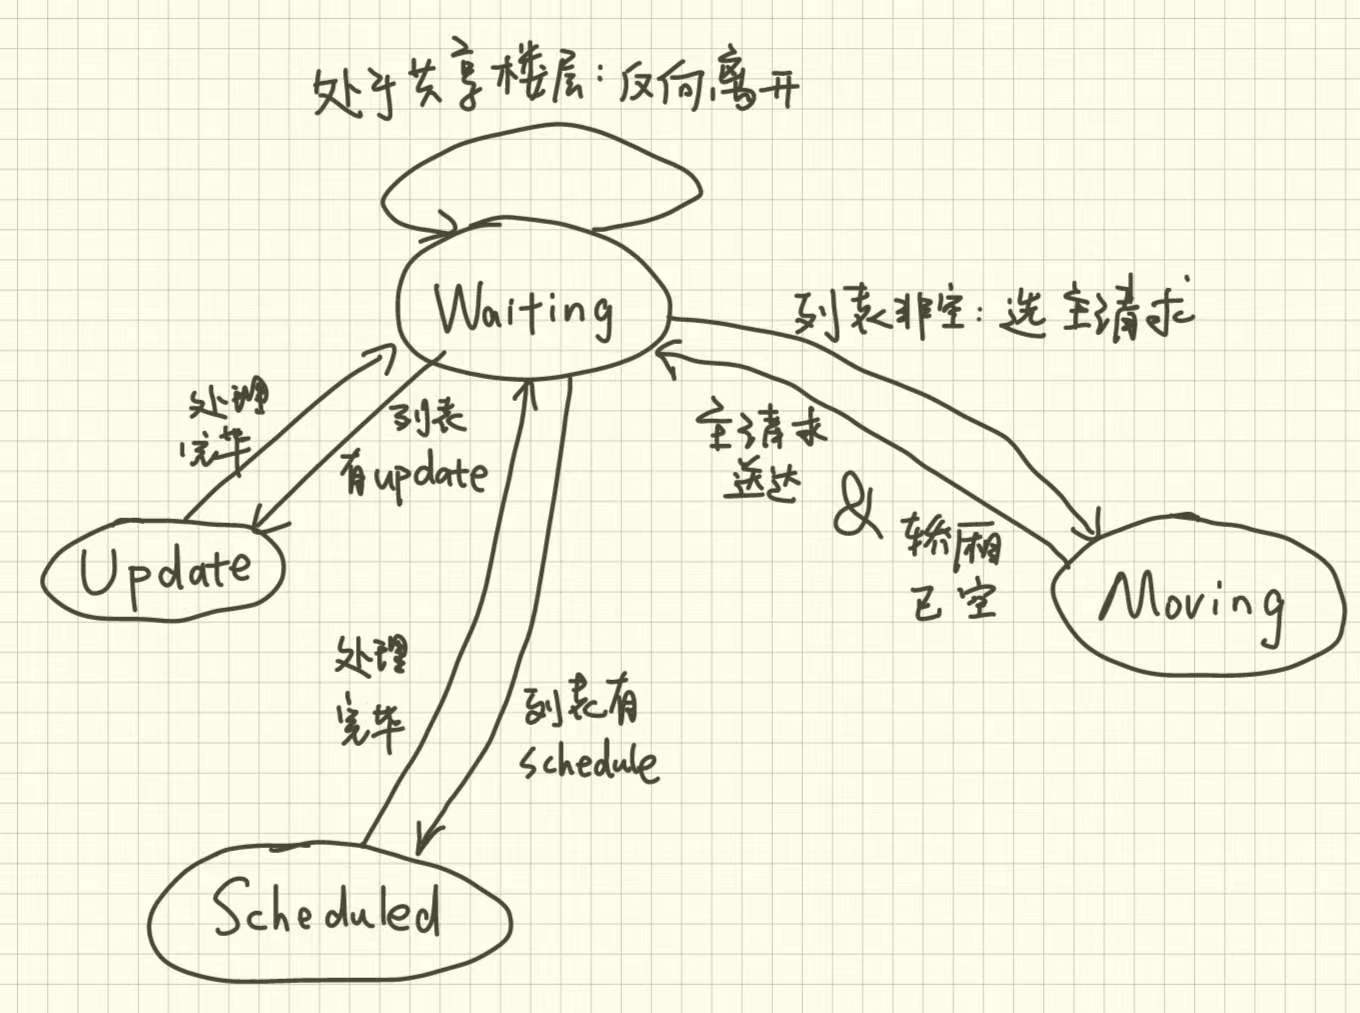 处于共享楼层：反向离开
Waiting
列表非空：选主请求
处理
完毕
列表
有update
主请求
送达
&
轿厢
已空
Update
Moving
处理
完毕
列表有
schedule
Scheduled